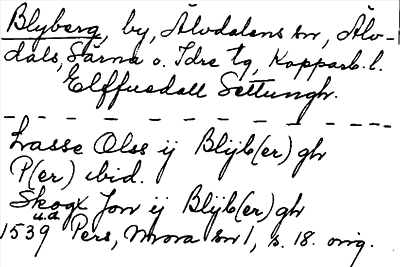 Blyberg, by, Älvdalens sn, Älv-
dals, Särna o. Idre tg, Kopparb. l.
Elffuedall Settungh.
Lasse Olss ij Blijb(er)gh
P(er) ibid.
Skogx Jon ij Blijb(er)gh
u.å.
1539 Pers, Mora sn 1, s. 18. orig.